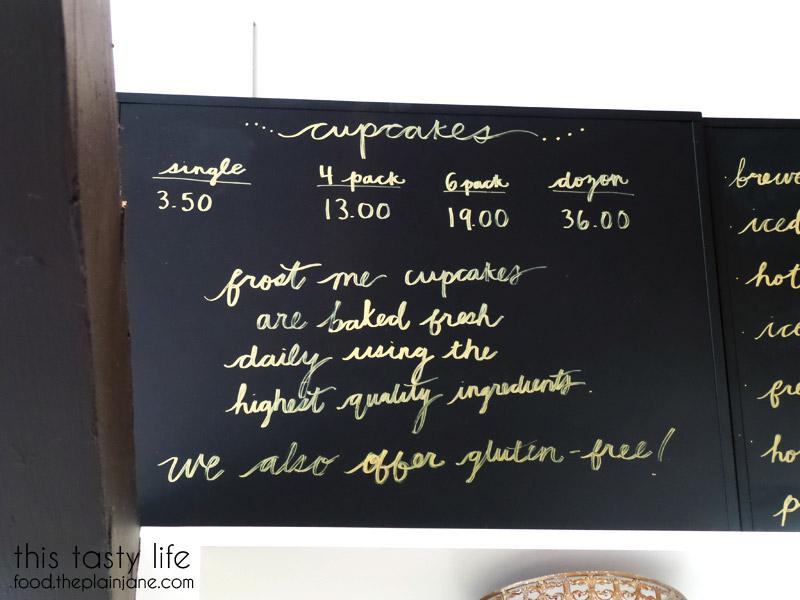 cupcakes
single 4 pack 6 pack dozen
3.50 13.00 19.00 36.00
frost me cupcakes
are baked fresh
daily using the
highest quality ingredients.
we also offer gluten-free!
iced
hot
this tasty life
food.theplainjane.com